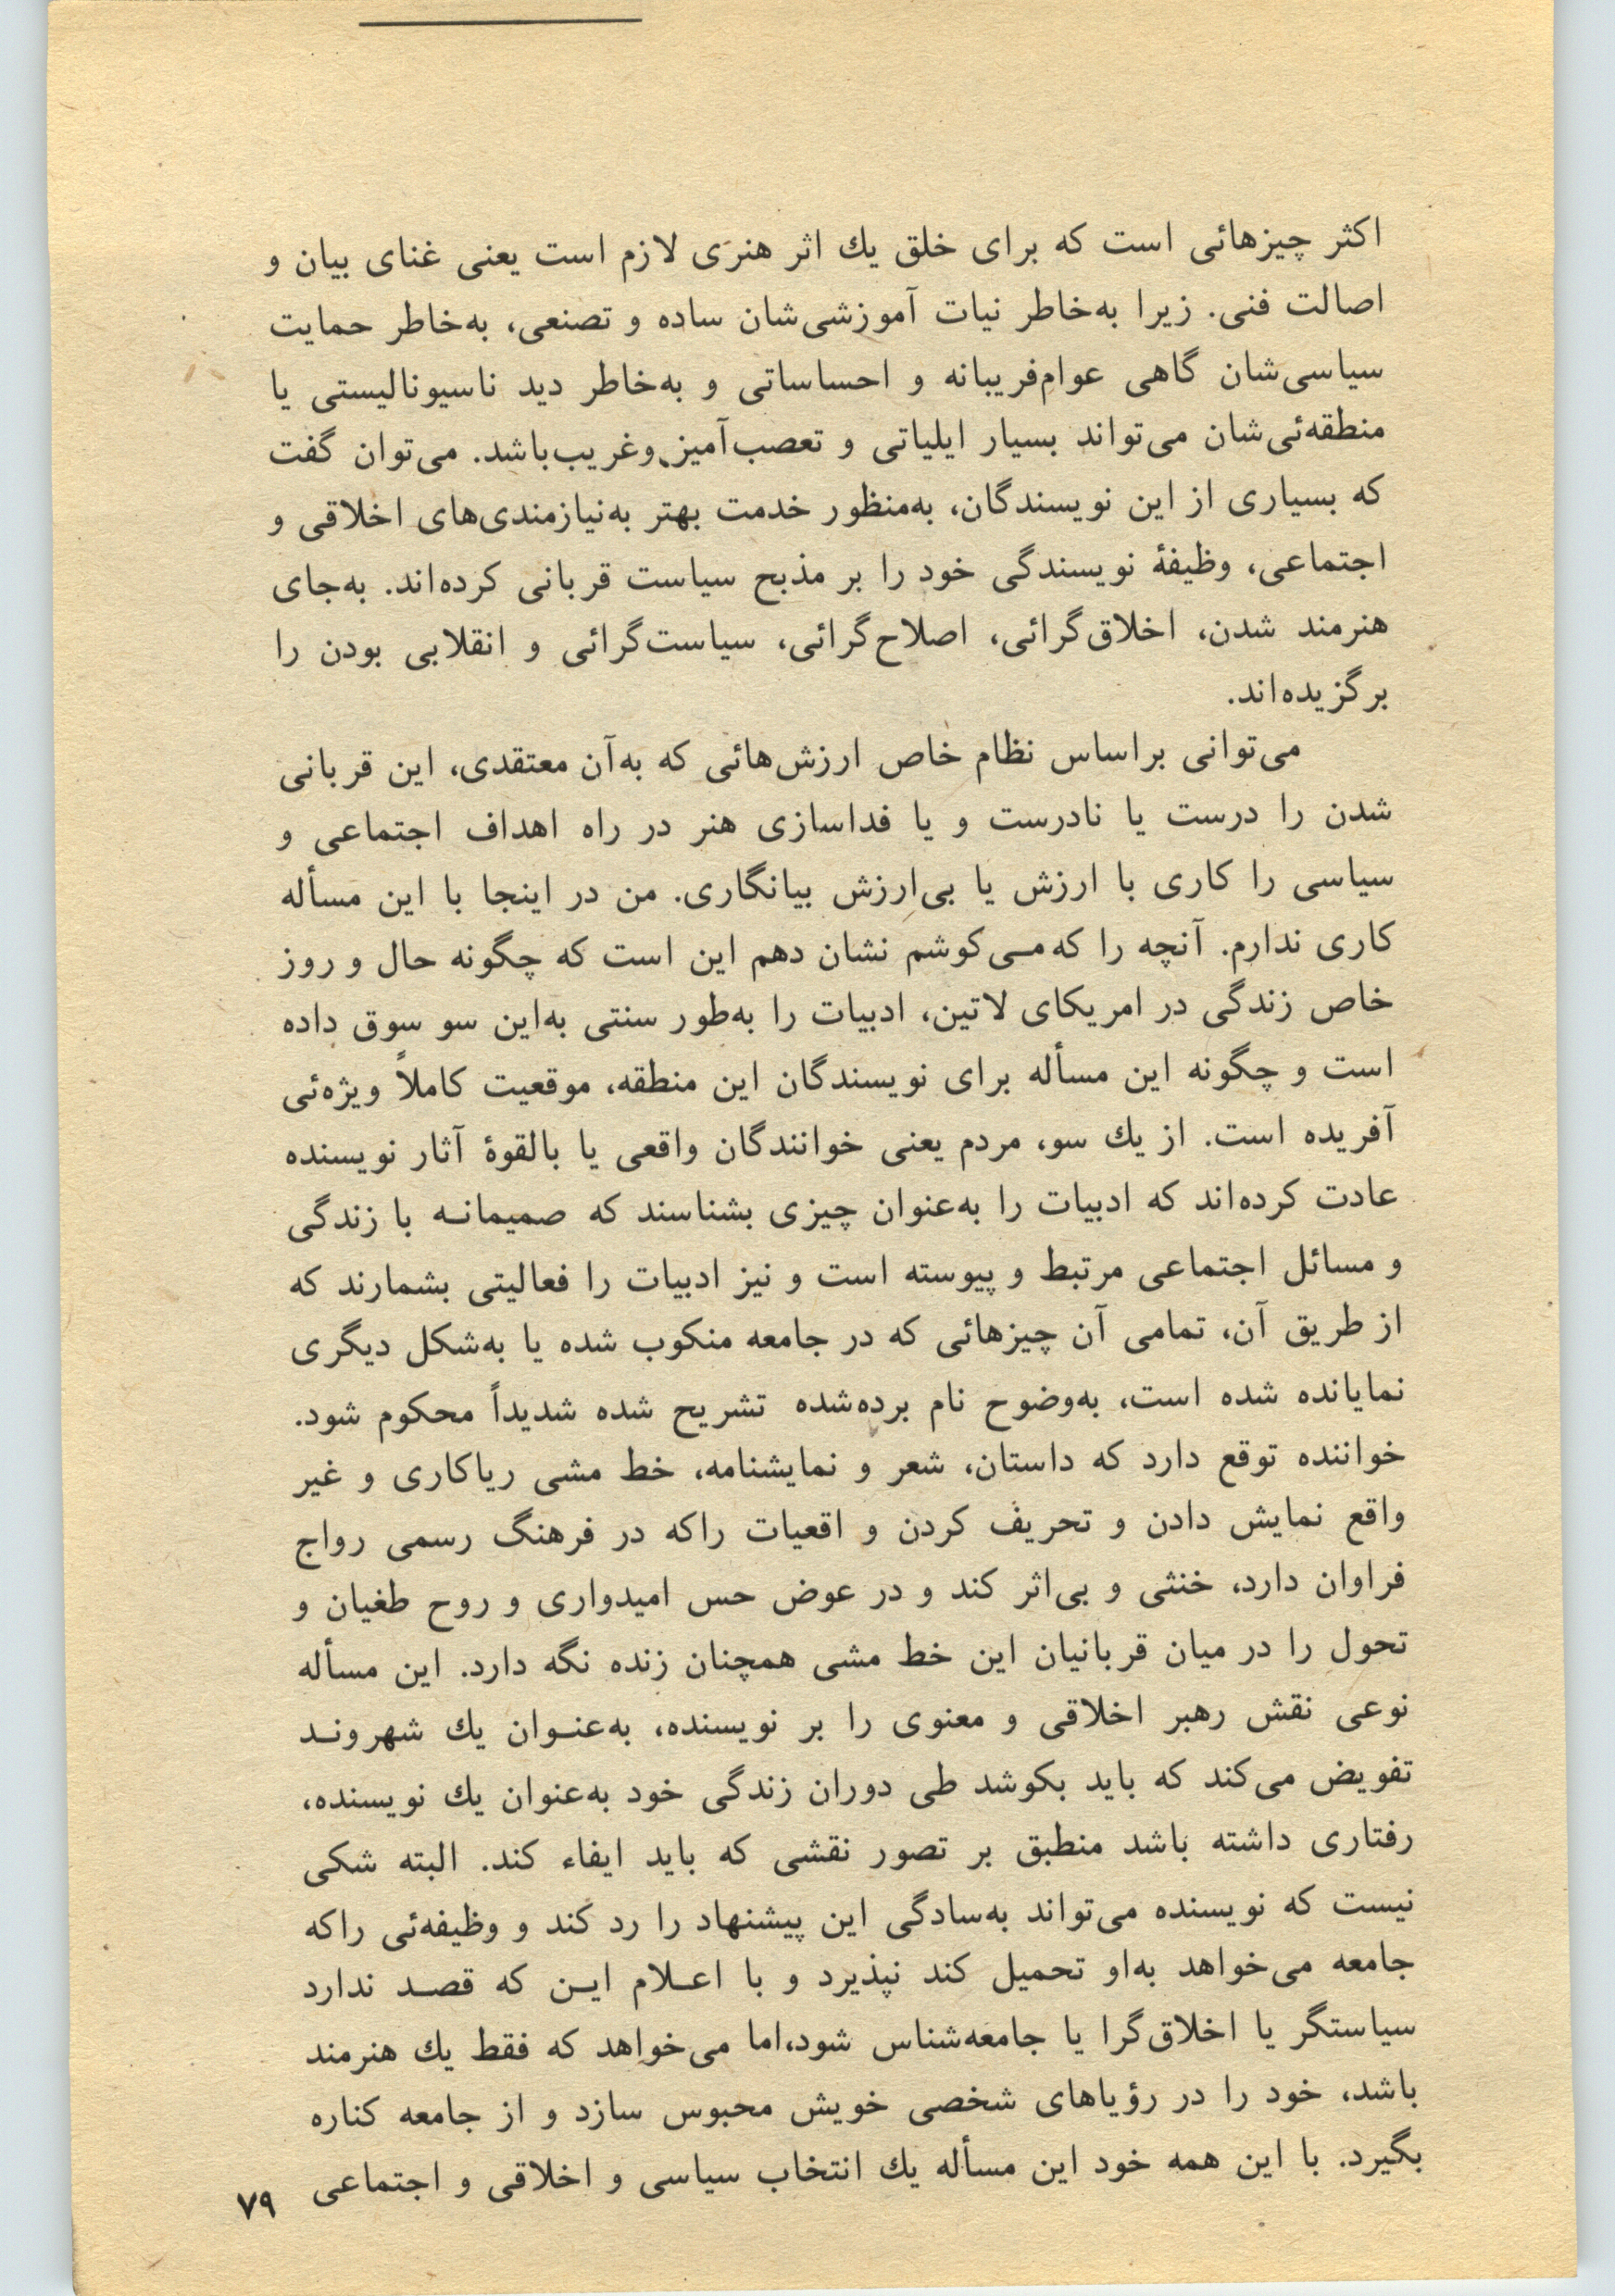 اکثر چیزهائی است که برای خلق یك اثر هنری لازم است یعنی غنای بیان و
اصالت فنی. زیرا به‌خاطر نیات آموزشی‌شان ساده و تصنعی، به‌خاطر حمایت
سیاسی‌شان گاهی عوام‌فریبانه و احساساتی و به‌خاطر دید ناسیونالیستی یا
منطقه‌ئی‌شان می‌تواند بسیار ایلیاتی و تعصب‌آمیز وغریب‌باشد. می‌توان گفت
که بسیاری از این نویسندگان، به‌منظور خدمت بهتر به‌نیازمندی‌های اخلاقی و
اجتماعی، وظیفهٔ نویسندگی خود را بر مذبح سیاست قربانی کرده‌اند. به‌جای
هنرمند شدن، اخلاق‌گرائی، اصلاح‌گرائی، سیاست‌گرائی و انقلابی بودن را
برگزیده‌اند.
می‌توانی براساس نظام خاص ارزش‌هائی که به‌آن معتقدی، این قربانی
شدن را درست یا نادرست و یا فداسازی هنر در راه اهداف اجتماعی و
سیاسی را کاری با ارزش یا بی‌ارزش بیانگاری. من در اینجا با این مسأله
کاری ندارم. آنچه را که مـی‌کوشم نشان دهم این است که چگونه حال و روز
خاص زندگی در امریکای لاتین، ادبیات را به‌طور سنتی به‌این سو سوق داده
است و چگونه این مسأله برای نویسندگان این منطقه، موقعیت کاملاً ویژه‌ئی
آفریده است. از یك سو، مردم یعنی خوانندگان واقعی یا بالقوهٔ آثار نویسنده
عادت کرده‌اند که ادبیات را به‌عنوان چیزی بشناسند که صمیمانـه با زندگی
و مسائل اجتماعی مرتبط و پیوسته است و نیز ادبیات را فعالیتی بشمارند که
از طریق آن، تمامی آن چیزهائی که در جامعه منکوب شده یا به‌شکل دیگری
نمایانده شده است، به‌وضوح نام برده‌شده تشریح شده شدیداً محکوم شود.
خواننده توقع دارد که داستان، شعر و نمایشنامه، خط مشی ریاکاری و غیر
واقع نمایش دادن و تحریف کردن و اقعیات راکه در فرهنگ رسمی رواج
فراوان دارد، خنثی و بی‌اثر کند و در عوض حس امیدواری و روح طغیان و
تحول را در میان قربانیان این خط مشی همچنان زنده نگه دارد. این مسأله
نوعی نقش رهبر اخلاقی و معنوی را بر نویسنده، به‌عنـوان یك شهرونـد
تفویض می‌کند که باید بکوشد طی دوران زندگی خود به‌عنوان یك نویسنده،
رفتاری داشته باشد منطبق بر تصور نقشی که باید ایفاء کند. البته شکی
نیست که نویسنده می‌تواند به‌سادگی این پیشنهاد را رد کند و وظیفه‌ئی راکه
جامعه می‌خواهد به‌او تحمیل کند نپذیرد و با اعـلام ایـن که قصـد ندارد
سیاستگر یا اخلاق‌گرا یا جامعه‌شناس شود،اما می‌خواهد که فقط یك هنرمند
باشد، خود را در رؤیاهای شخصی خویش محبوس سازد و از جامعه کناره
بگیرد. با این همه خود این مسأله یك انتخاب سیاسی و اخلاقی و اجتماعی
۷۹